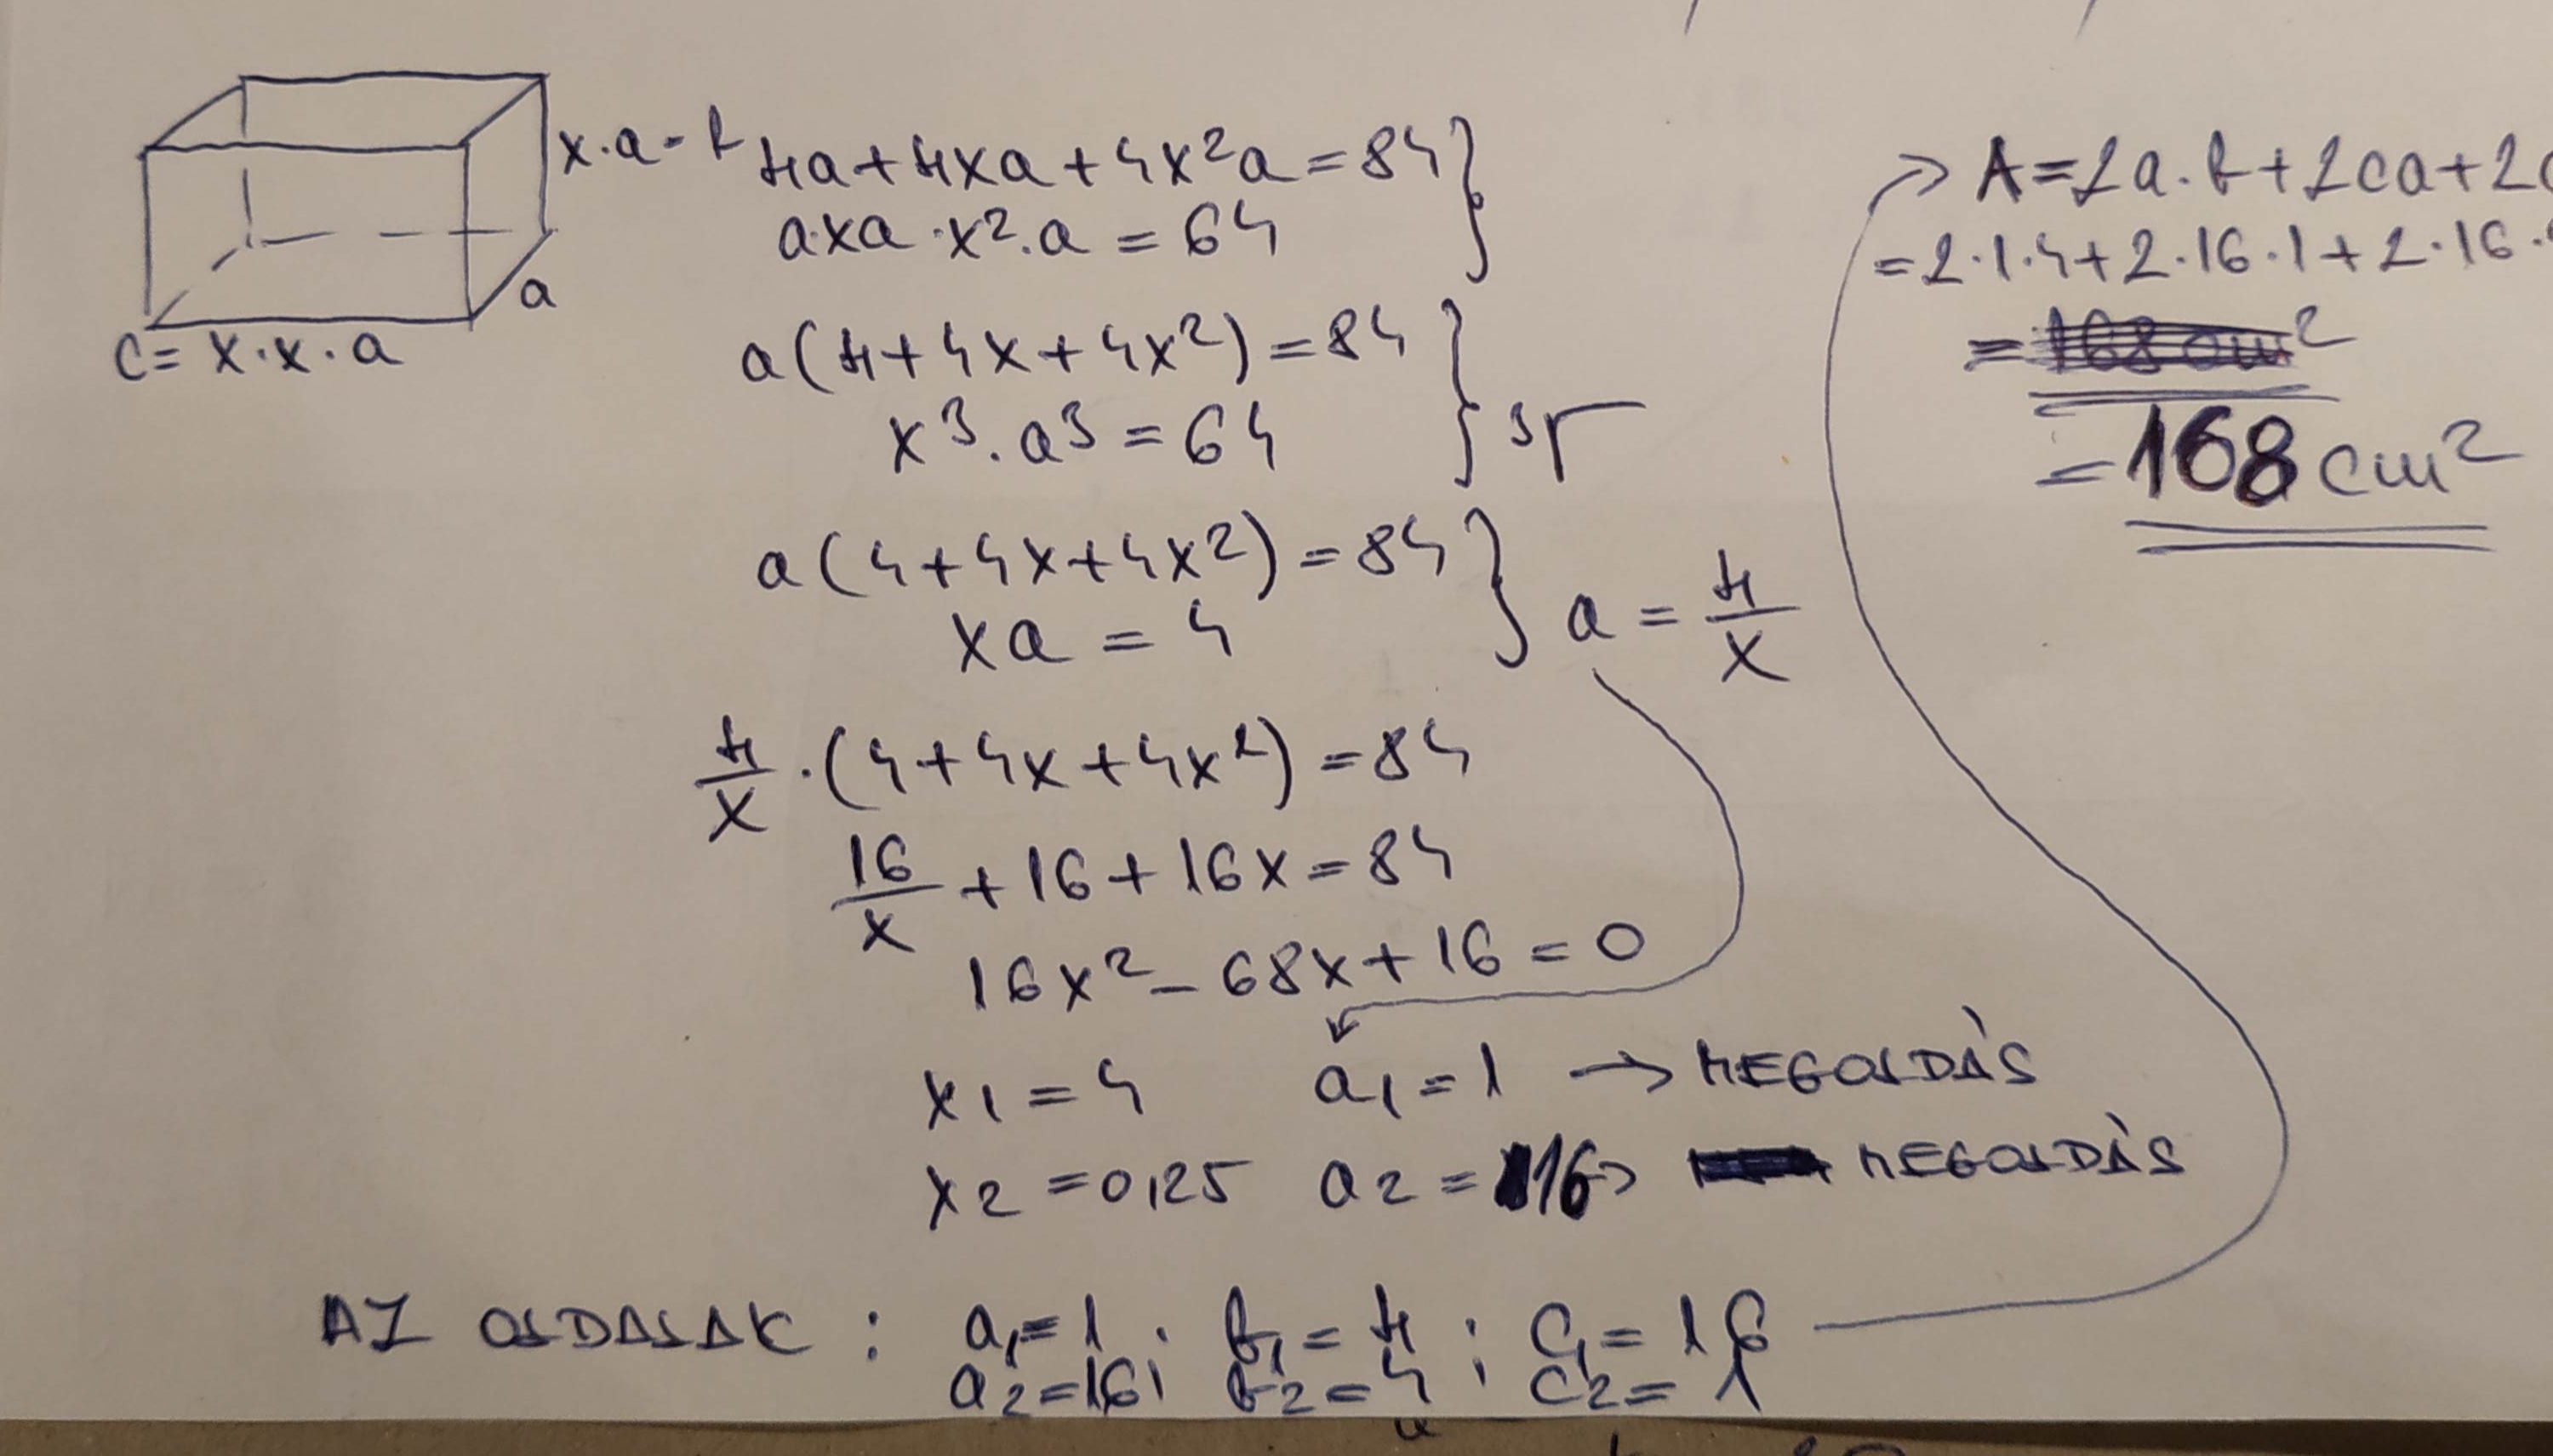 x·a=b
a
c= x·x·a
4a+4xa+4x²a=84
a·xa·x²·a=64
a(4+4x+4x²)=84
x³·a³=64
³√
a(4+4x+4x²)=84
xa=4
a=4/x
4/x·(4+4x+4x²)=84
16/x+16+16x=84
16x²-68x+16=0
x1=4 a1=1 → MEGOLDÀS
x2=0,25 a2=16> MEGOLDÀS
AZ OLDALAK: a1=1; b1=4; c1=16
a2=16; b2=4; c2=1
→ A=2a·b+2ca+2c
=2·1·4+2·16·1+2·16·
=168cm²
=168cm²